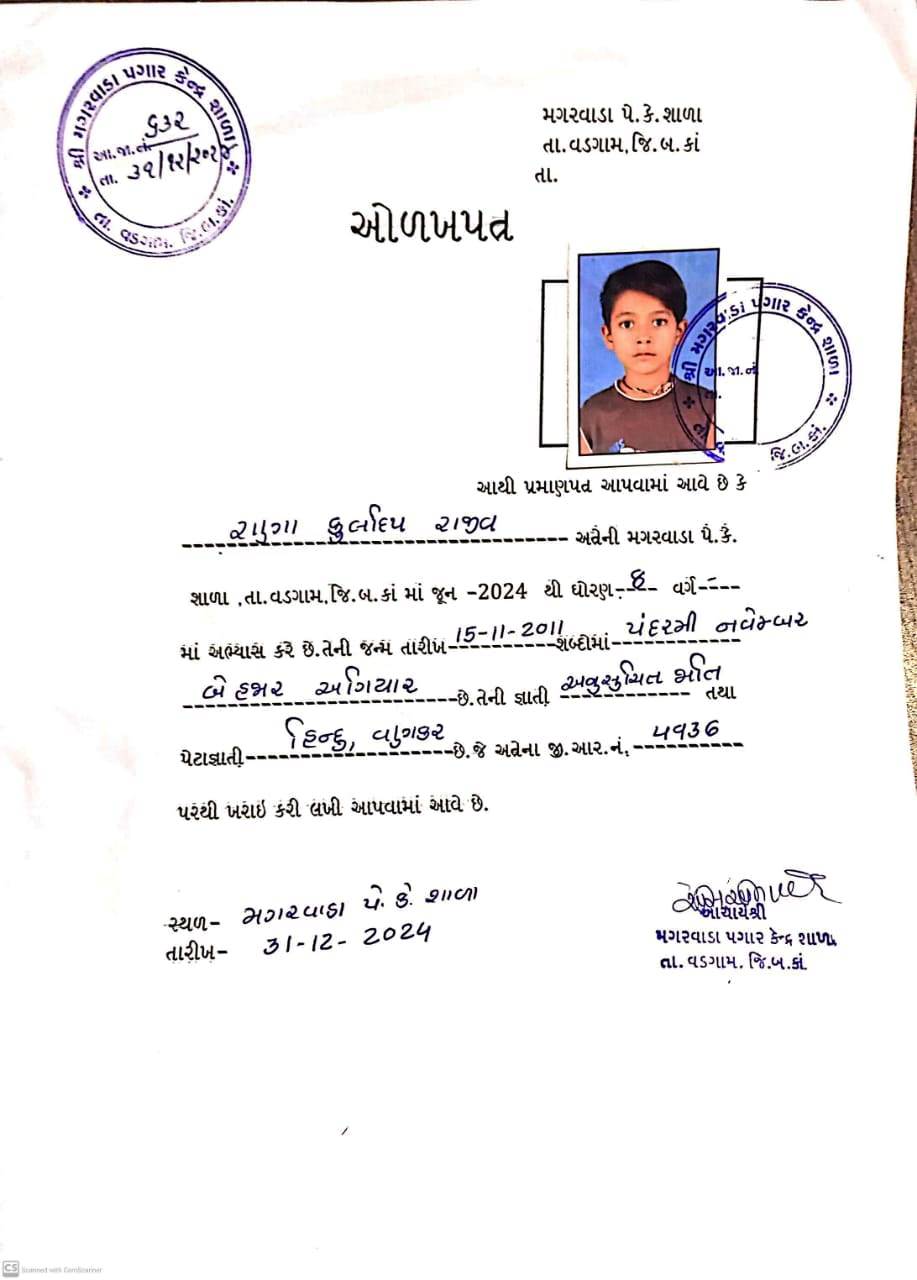 શ્રી મગરવાડા પગાર કેન્દ્ર શાળા
આ.જા.નં. ૬૩૨
તા. ૩૧/૧૨/૨૦૨૪
તા. વડગામ. જિ.બ.કાં.
મગરવાડા પે.કે.શાળા
તા.વડગામ,જિ.બ.કાં
તા.
ઓળખપત્ર
શ્રી મગરવાડા પગાર કેન્દ્ર શાળા
આ.જા.નં
તા.
જિ.બ.કાં.
આથી પ્રમાણપત્ર આપવામાં આવે છે કે
કુલદિપ રાજીવ અત્રેની મગરવાડા પે.કે.
શાળા ,તા.વડગામ,જિ.બ.કાં માં જૂન -2024 થી ધોરણ.-8 વર્ગ -
માં અભ્યાસ કરે છે.તેની જન્મ તારીખ 15-11-2011 શબ્દોમાં પંદરમી નવેમ્બર
બે હજાર અગિયાર છે.તેની જ્ઞાતી અનુસુચિત જાતિ તથા
પેટાજ્ઞાતી હિન્દુ, વણકર છે.જે અત્રેના જી.આર.નં. ૫૧૩૬
પરથી ખરાઇ કરી લખી આપવામાં આવે છે.
સ્થળ- મગરવાડા પે. કે. શાળા
તારીખ- 31-12-2024
આચાર્યશ્રી
મગરવાડા પગાર કેન્દ્ર શાળા
તા. વડગામ. જિ.બ.કાં.
CS Scanned with CamScanner